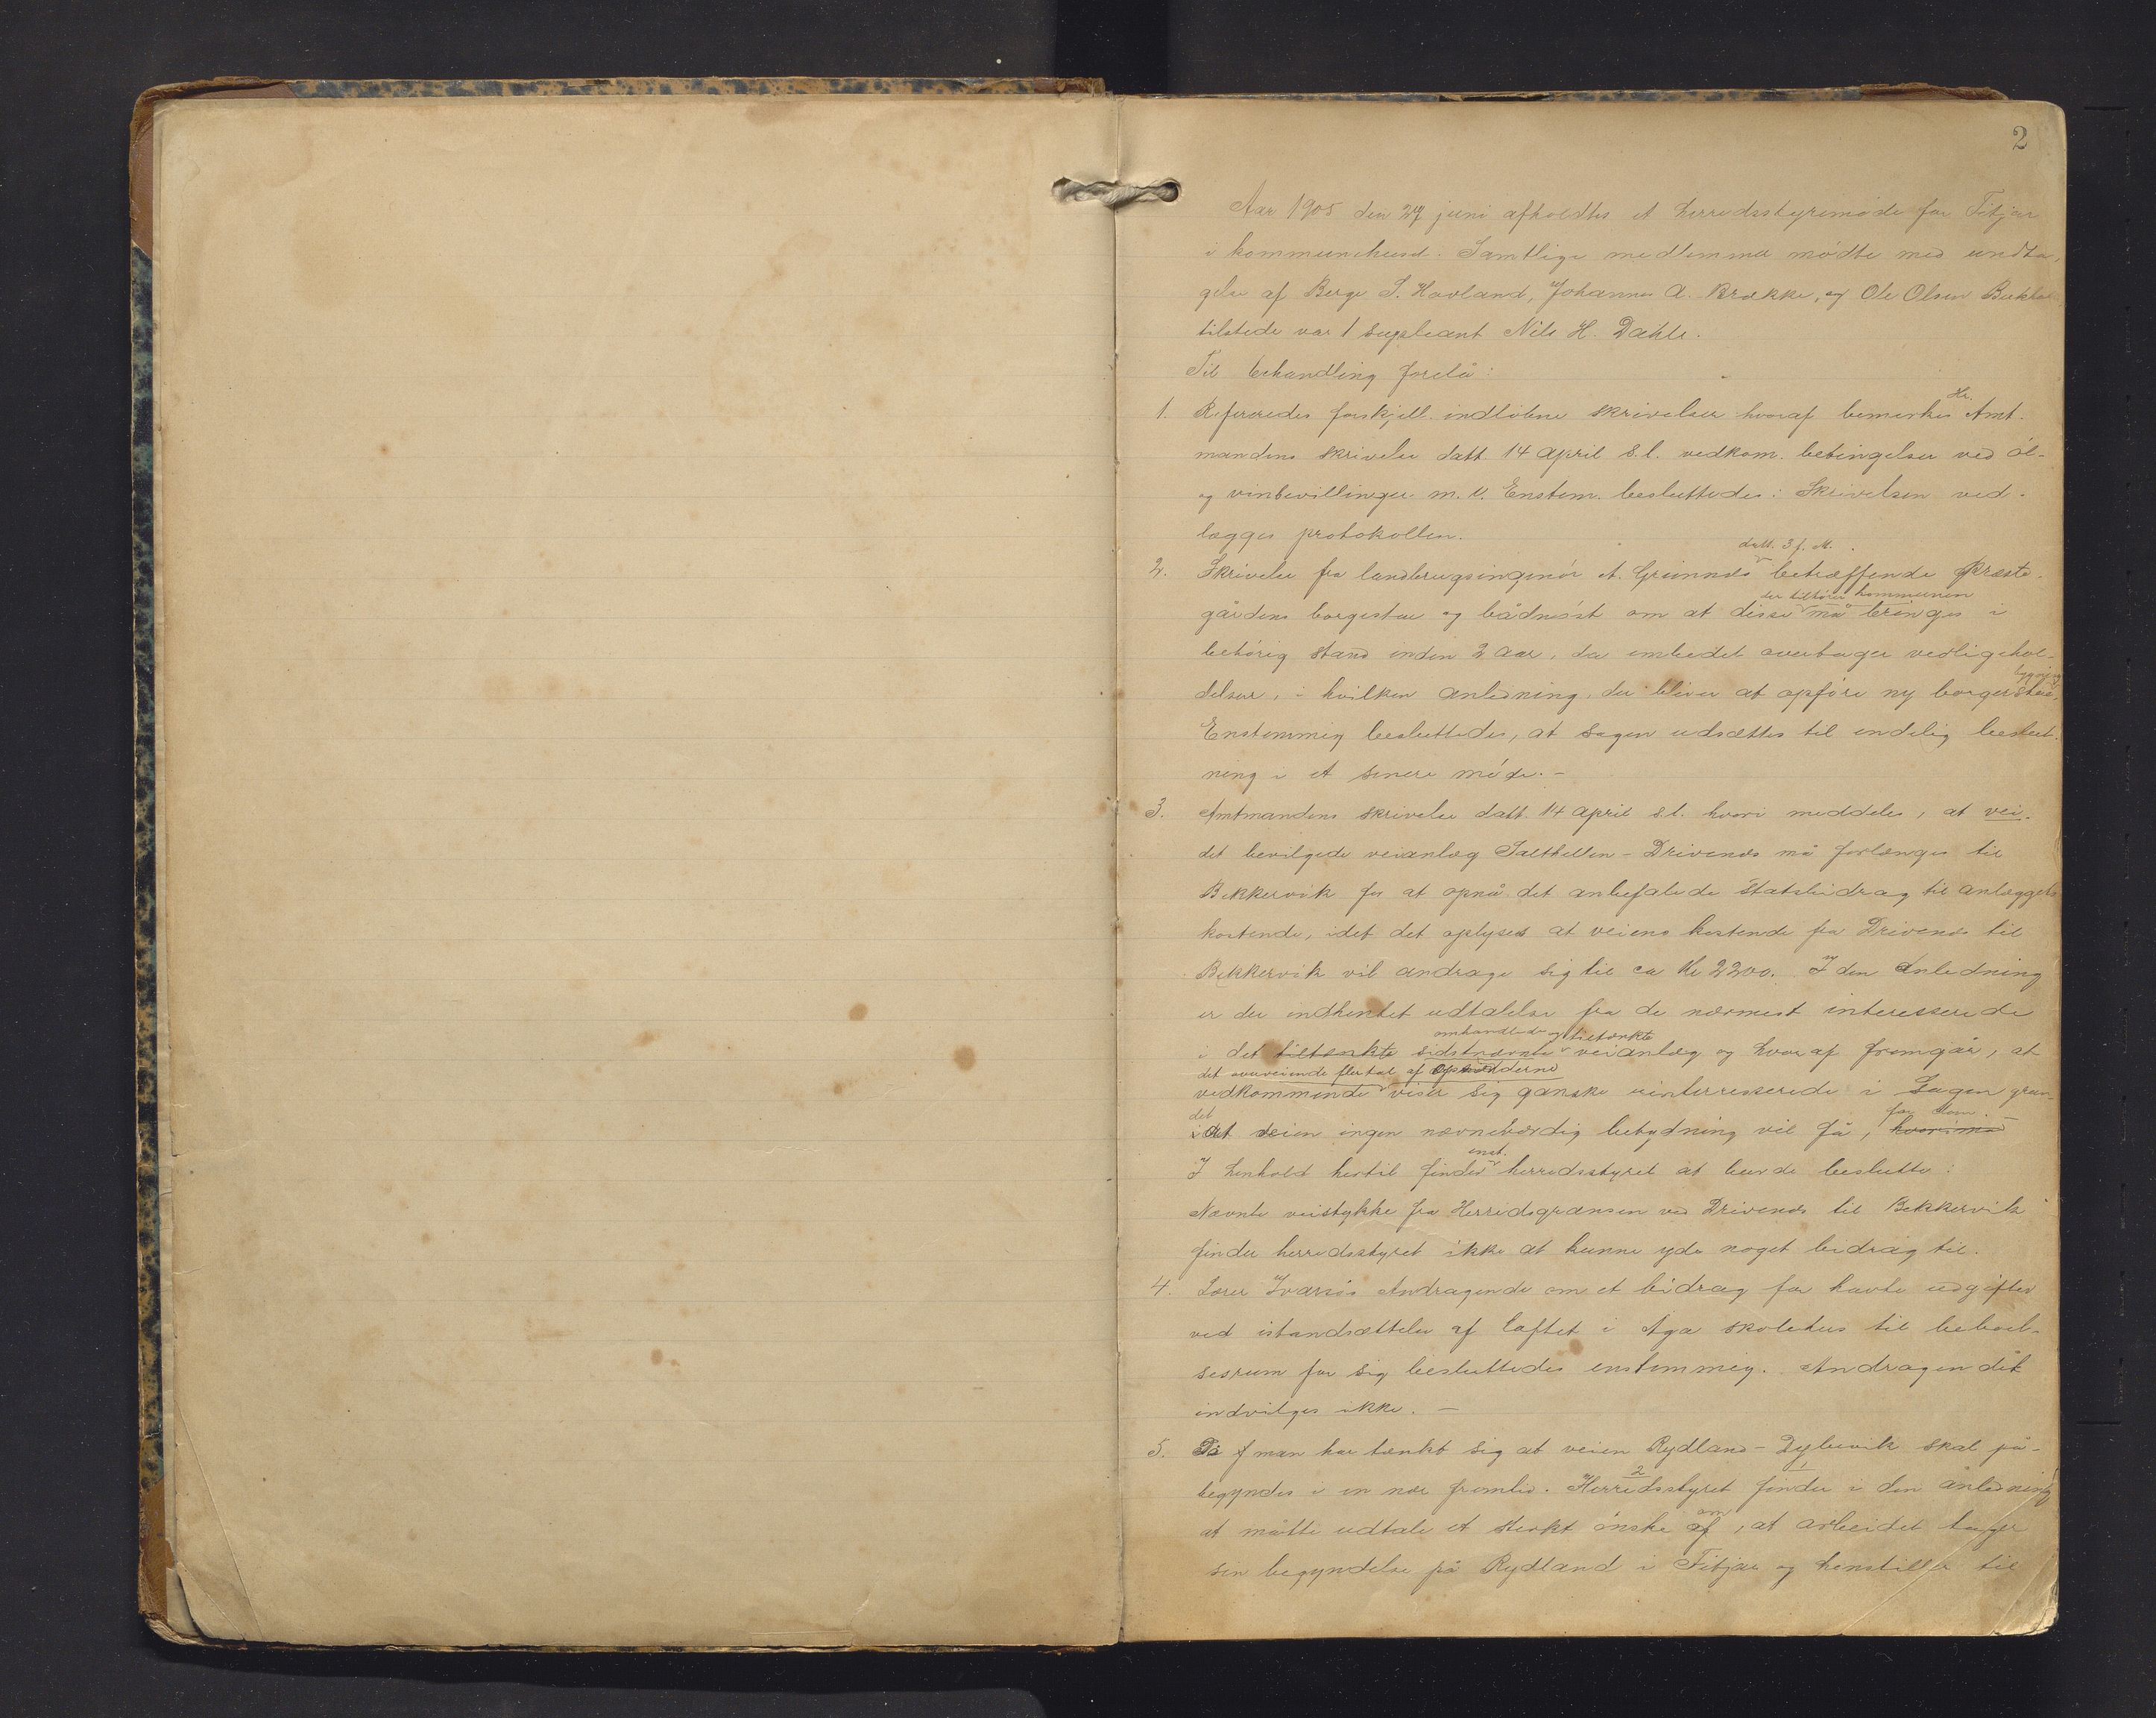 2
Aar 1905 den 27 juni afholdtes et herredsstyremøde for Fitjar
i kommunehuset. Samtlige medlemmer mødte med undta-
gelse af Berge S. Havland, Johannes A. Brække, og Ole Olsen
tilstede var 1 supleant Nils H. Dahle.
Til behandling forelå:
1. Refereredes forskjell. indløbne skrivelser hvoraf bemerkes Hr. Amt-
mandens skrivelse datt. 14 april s.l. vedkom. betingelser ved øl-
og vinbevillinger m.v. Enstem. besluttedes: Skrivelsen ved-
lægges protokollen.
datt. 3 f. M.
2. Skrivelse fra landbrugsingeniør A. Grimnæs betræffende Præste-
der tilhører kommunen
gårdens borgestue og bådnøst om at disse må bringes i
behørig stand inden 2 aar, da embedet overtager vedligehol-
bygning
delsen, i hvilken anledning der bliver at opføre ny borgerstue
Enstemmig besluttedes, at sagen udsættes til endelig beslut-
ning i et senere møde. -
3. Amtmandens skrivelse datt. 14 april s.l. hvori meddeles, at vei-
det bevilgede veianlæg Salthellen - Drivenes må forlænges til
Bekkervik for at opnå det anbefalede statsbidrag til anlæggets
kostende, idet det oplyses at veiens kostende fra Drivenes til
Bekkervik vil andrage sig til ca Kr 2200. I den Anledning
er der indhentet udtalelse fra de nærmest interesserede
omhandlede og tiltænkte
i det tiltænkte sidstnævnte veianlæg og hvoraf fremgår, at
det overveiende flertal af opsidderne
vedkommende viser sig ganske uinterresserede i Sagen
det for dem.
idet veien ingen nævneværdig betydning vil få,
enst.
I henhold hertil finder herredsstyret at burde beslutte:
Nævnte veistykke fra Herredsgrænsen ved Drivenes til Bekkervik
finder herredsstyret ikke at kunne yde noget bidrag til.
4. Lærer Ivarsøs Andragende om et bidrag for havte udgifter
ved istandsættelse af loftet i Aga skolehus til beboel-
sesrum for sig besluttedes enstemmig. Andragendet
indvilges ikke. -
5. man har tænkt sig at veien Rydland - Dybevik skal på-
2 1
begyndes i en nær fremtid. Herredsstyret finder i den anledning
om
at måtte udtale et sterkt ønske af, at arbeidet tager
sin begyndelse på Rydland i Fitjar og henstiller til